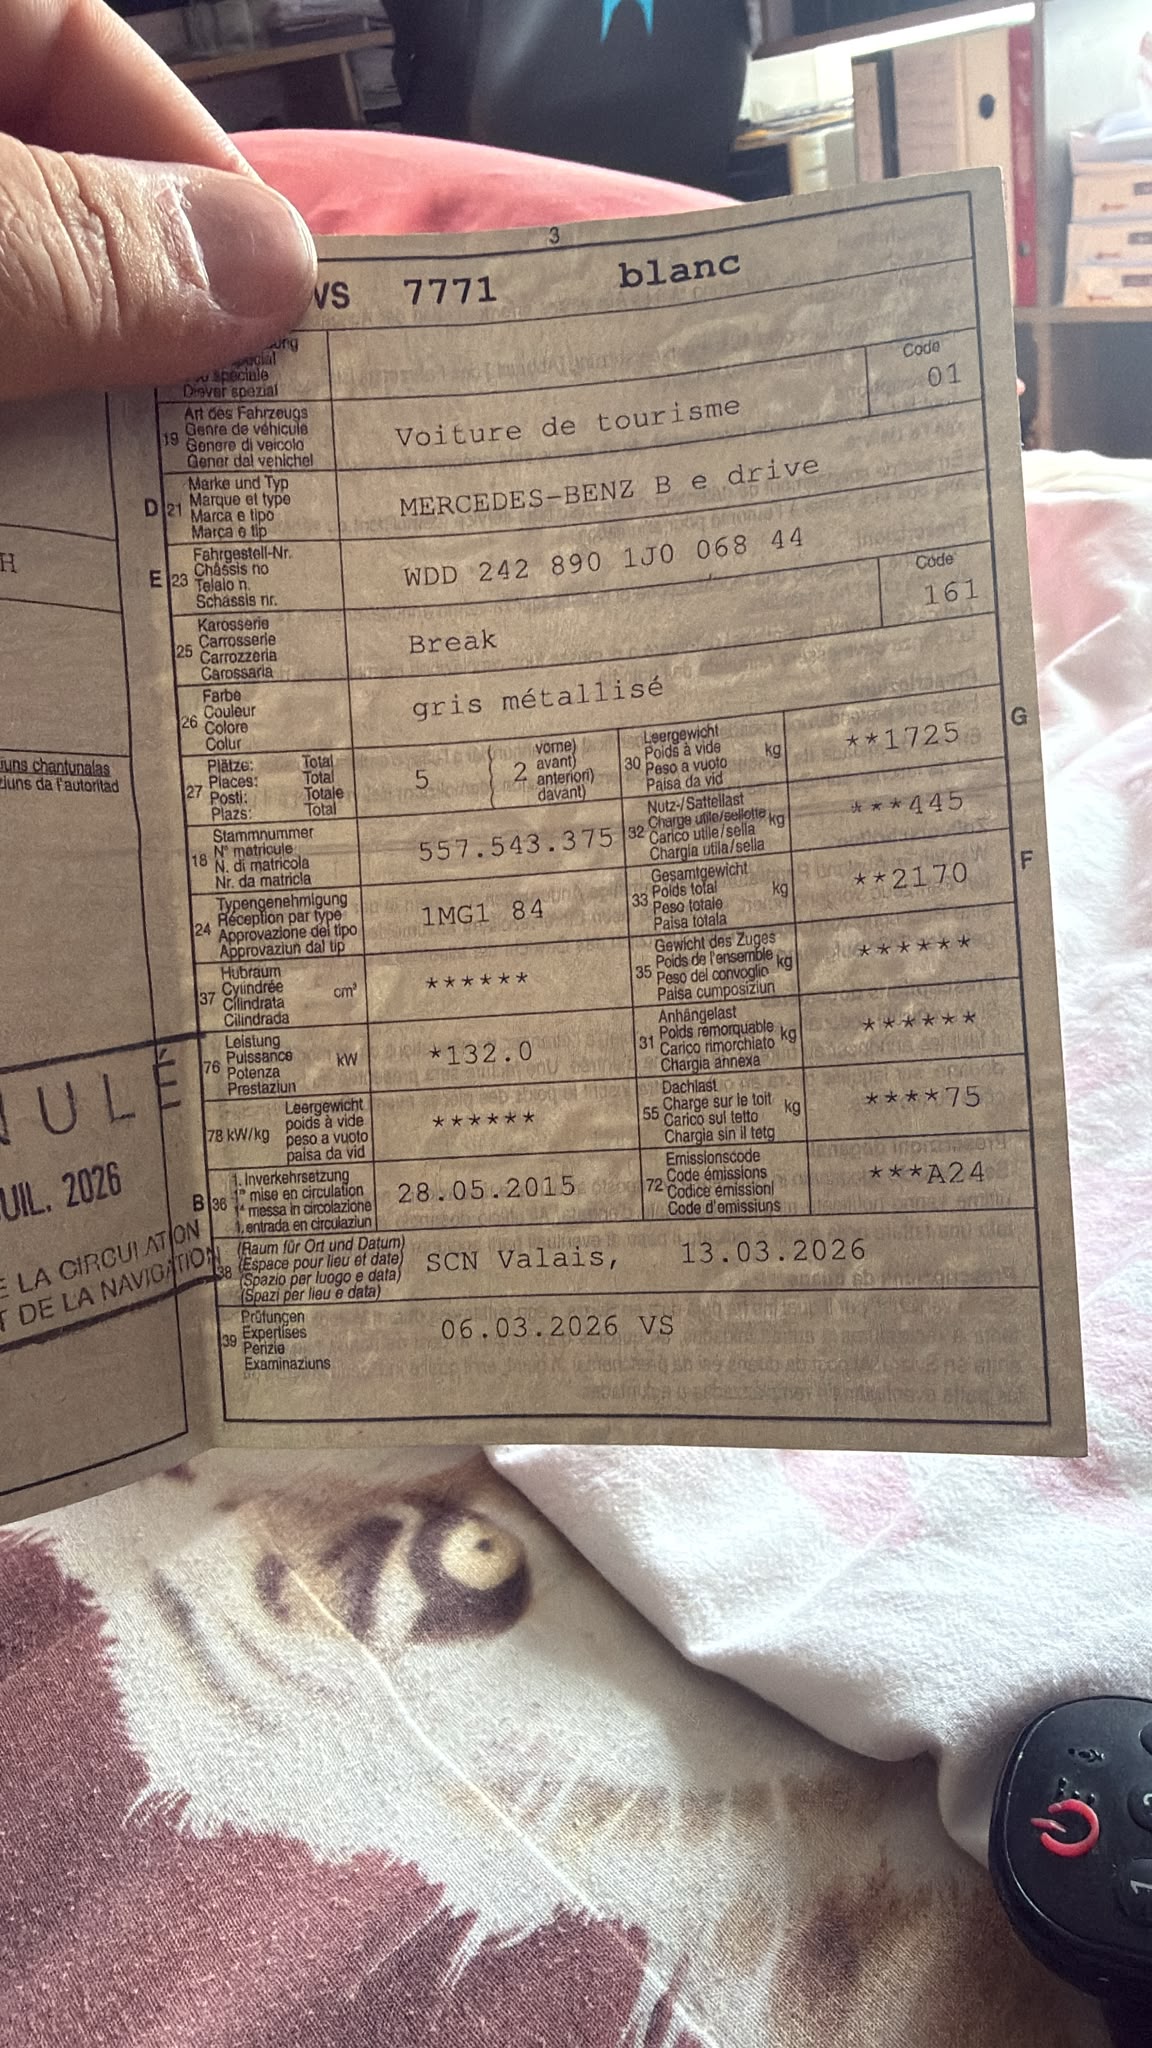 3
VS 7771 blanc
spécial
spéciale
Diever spezial
19 Art des Fahrzeugs
Genre de véhicule
Genere di veicolo
Gener dal vehichel
Voiture de tourisme
Code
01
D 21 Marke und Typ
Marque et type
Marca e tipo
Marca e tip
MERCEDES-BENZ B e drive
E 23 Fahrgestell-Nr.
Châssis no
Telaio n.
Schassis nr.
WDD 242 890 1J0 068 44
25 Karosserie
Carrosserie
Carrozzeria
Carossaria
Break
Code
161
26 Farbe
Couleur
Colore
Colur
gris métallisé
27 Plätze: Total
Places: Total
Posti: Totale
Plazs: Total
5
2
vorne)
avant)
anteriori)
davant)
30 Leergewicht
Poids à vide
Peso a vuoto
Paisa da vid
kg
**1725
G
18 Stammnummer
N° matricule
N. di matricola
Nr. da matricla
557.543.375
32 Nutz-/Sattellast
Charge utile/sellette
Carico utile/sella
Chargia utila/sella
kg
***445
24 Typengenehmigung
Réception par type
Approvazione del tipo
Approvaziun dal tip
1MG1 84
33 Gesamtgewicht
Poids total
Peso totale
Paisa totala
kg
**2170
F
37 Hubraum
Cylindrée
Cilindrata
Cilindrada
cm³
******
35 Gewicht des Zuges
Poids de l'ensemble
Peso del convoglio
Paisa cumposiziun
kg
******
76 Leistung
Puissance
Potenza
Prestaziun
kW
*132.0
31 Anhängelast
Poids remorquable
Carico rimorchiato
Chargia annexa
kg
******
78 kW/kg
Leergewicht
poids à vide
peso a vuoto
paisa da vid
******
55 Dachlast
Charge sur le toit
Carico sul tetto
Chargia sin il tetg
kg
****75
B 36 1. Inverkehrsetzung
1re mise en circulation
1a messa in circolazione
1. entrada en circulaziun
28.05.2015
72 Emissionscode
Code émissions
Codice emissioni
Code d'emissiuns
***A24
38 (Raum für Ort und Datum)
(Espace pour lieu et date)
(Spazio per luogo e data)
(Spazi per lieu e data)
SCN Valais, 13.03.2026
39 Prüfungen
Expertises
Perizie
Examinaziuns
06.03.2026 VS
H
chantunalas
da l'autoritad
NULÉ
UIL. 2026
E LA CIRCULATION
T DE LA NAVIGATION
1